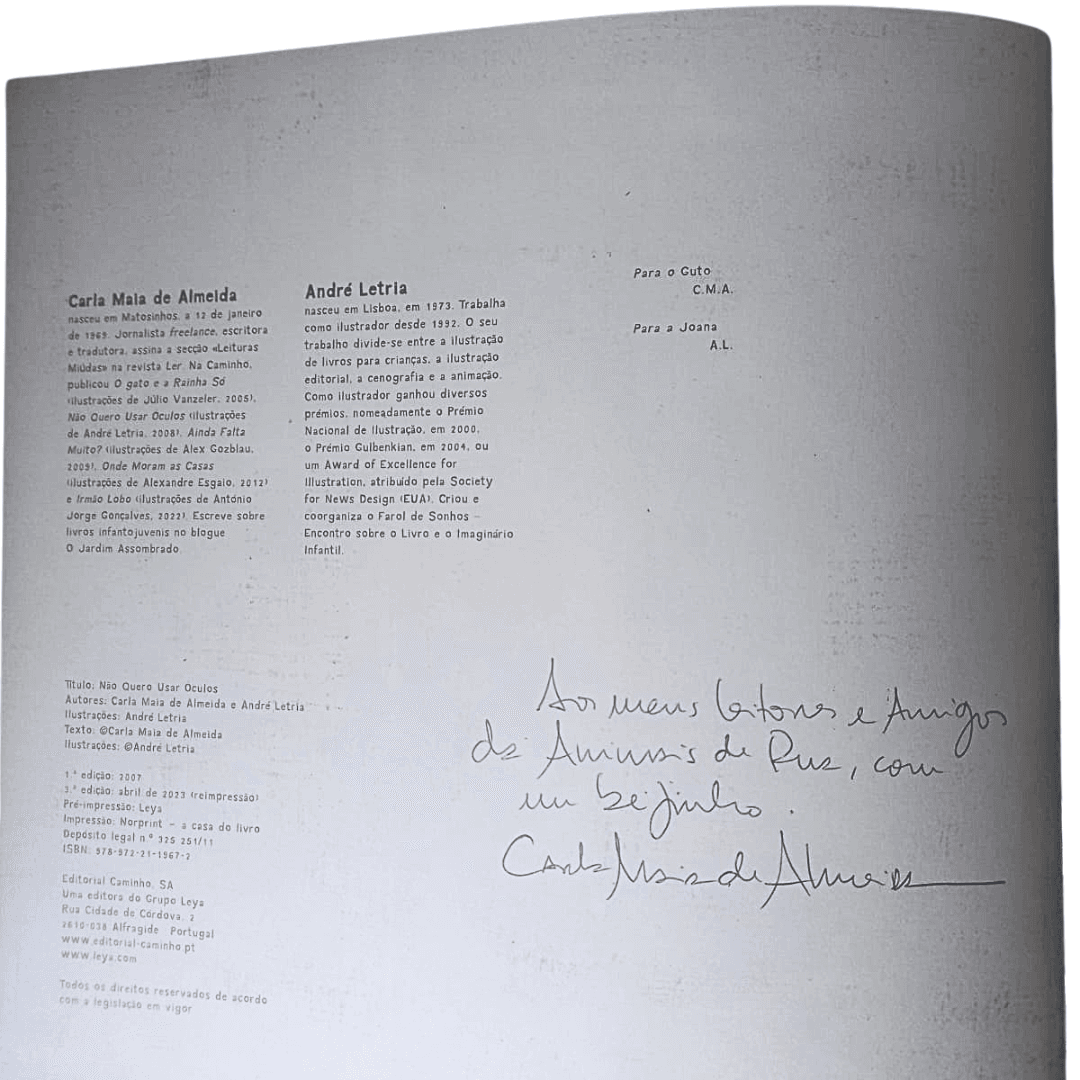 Carla Maia de Almeida
nasceu em Matosinhos, a 12 de janeiro
de 1969. Jornalista freelance, escritora
e tradutora, assina a secção «Leituras
Miúdas» na revista Ler. Na Caminho,
publicou O gato e a Rainha Só
(ilustrações de Júlio Vanzeler, 2005),
Não Quero Usar Óculos (ilustrações
de André Letria, 2008), Ainda Falta
Muito? (ilustrações de Alex Gozblau,
2009), Onde Moram as Casas
(ilustrações de Alexandre Esgaio, 2012)
e Irmão Lobo (ilustrações de António
Jorge Gonçalves, 2022). Escreve sobre
livros infantojuvenis no blogue
O Jardim Assombrado.
André Letria
nasceu em Lisboa, em 1973. Trabalha
como ilustrador desde 1992. O seu
trabalho divide-se entre a ilustração
de livros para crianças, a ilustração
editorial, a cenografia e a animação.
Como ilustrador ganhou diversos
prémios, nomeadamente o Prémio
Nacional de Ilustração, em 2000,
o Prémio Gulbenkian, em 2004, ou
um Award of Excellence for
Illustration, atribuído pela Society
for News Design (EUA). Criou e
coorganiza o Farol de Sonhos –
Encontro sobre o Livro e o Imaginário
Infantil.
Para o Guto
C.M.A.
Para a Joana
A.L.
Título: Não Quero Usar Óculos
Autores: Carla Maia de Almeida e André Letria
Ilustrações: André Letria
Texto: ©Carla Maia de Almeida
Ilustrações: ©André Letria
1.ª edição: 2007
3.ª edição: abril de 2023 (reimpressão)
Pré-impressão: Leya
Impressão: Norprint – a casa do livro
Depósito legal n.º 325 251/11
ISBN: 978-972-21-1967-2
Editorial Caminho, SA
Uma editora do Grupo Leya
Rua Cidade de Córdova, 2
2610-038 Alfragide Portugal
www.editorial-caminho.pt
www.leya.com
Todos os direitos reservados de acordo
com a legislação em vigor
Aos meus leitores e Amigos
da Animais de Rua, com
um beijinho.
Carla Maia de Almeida